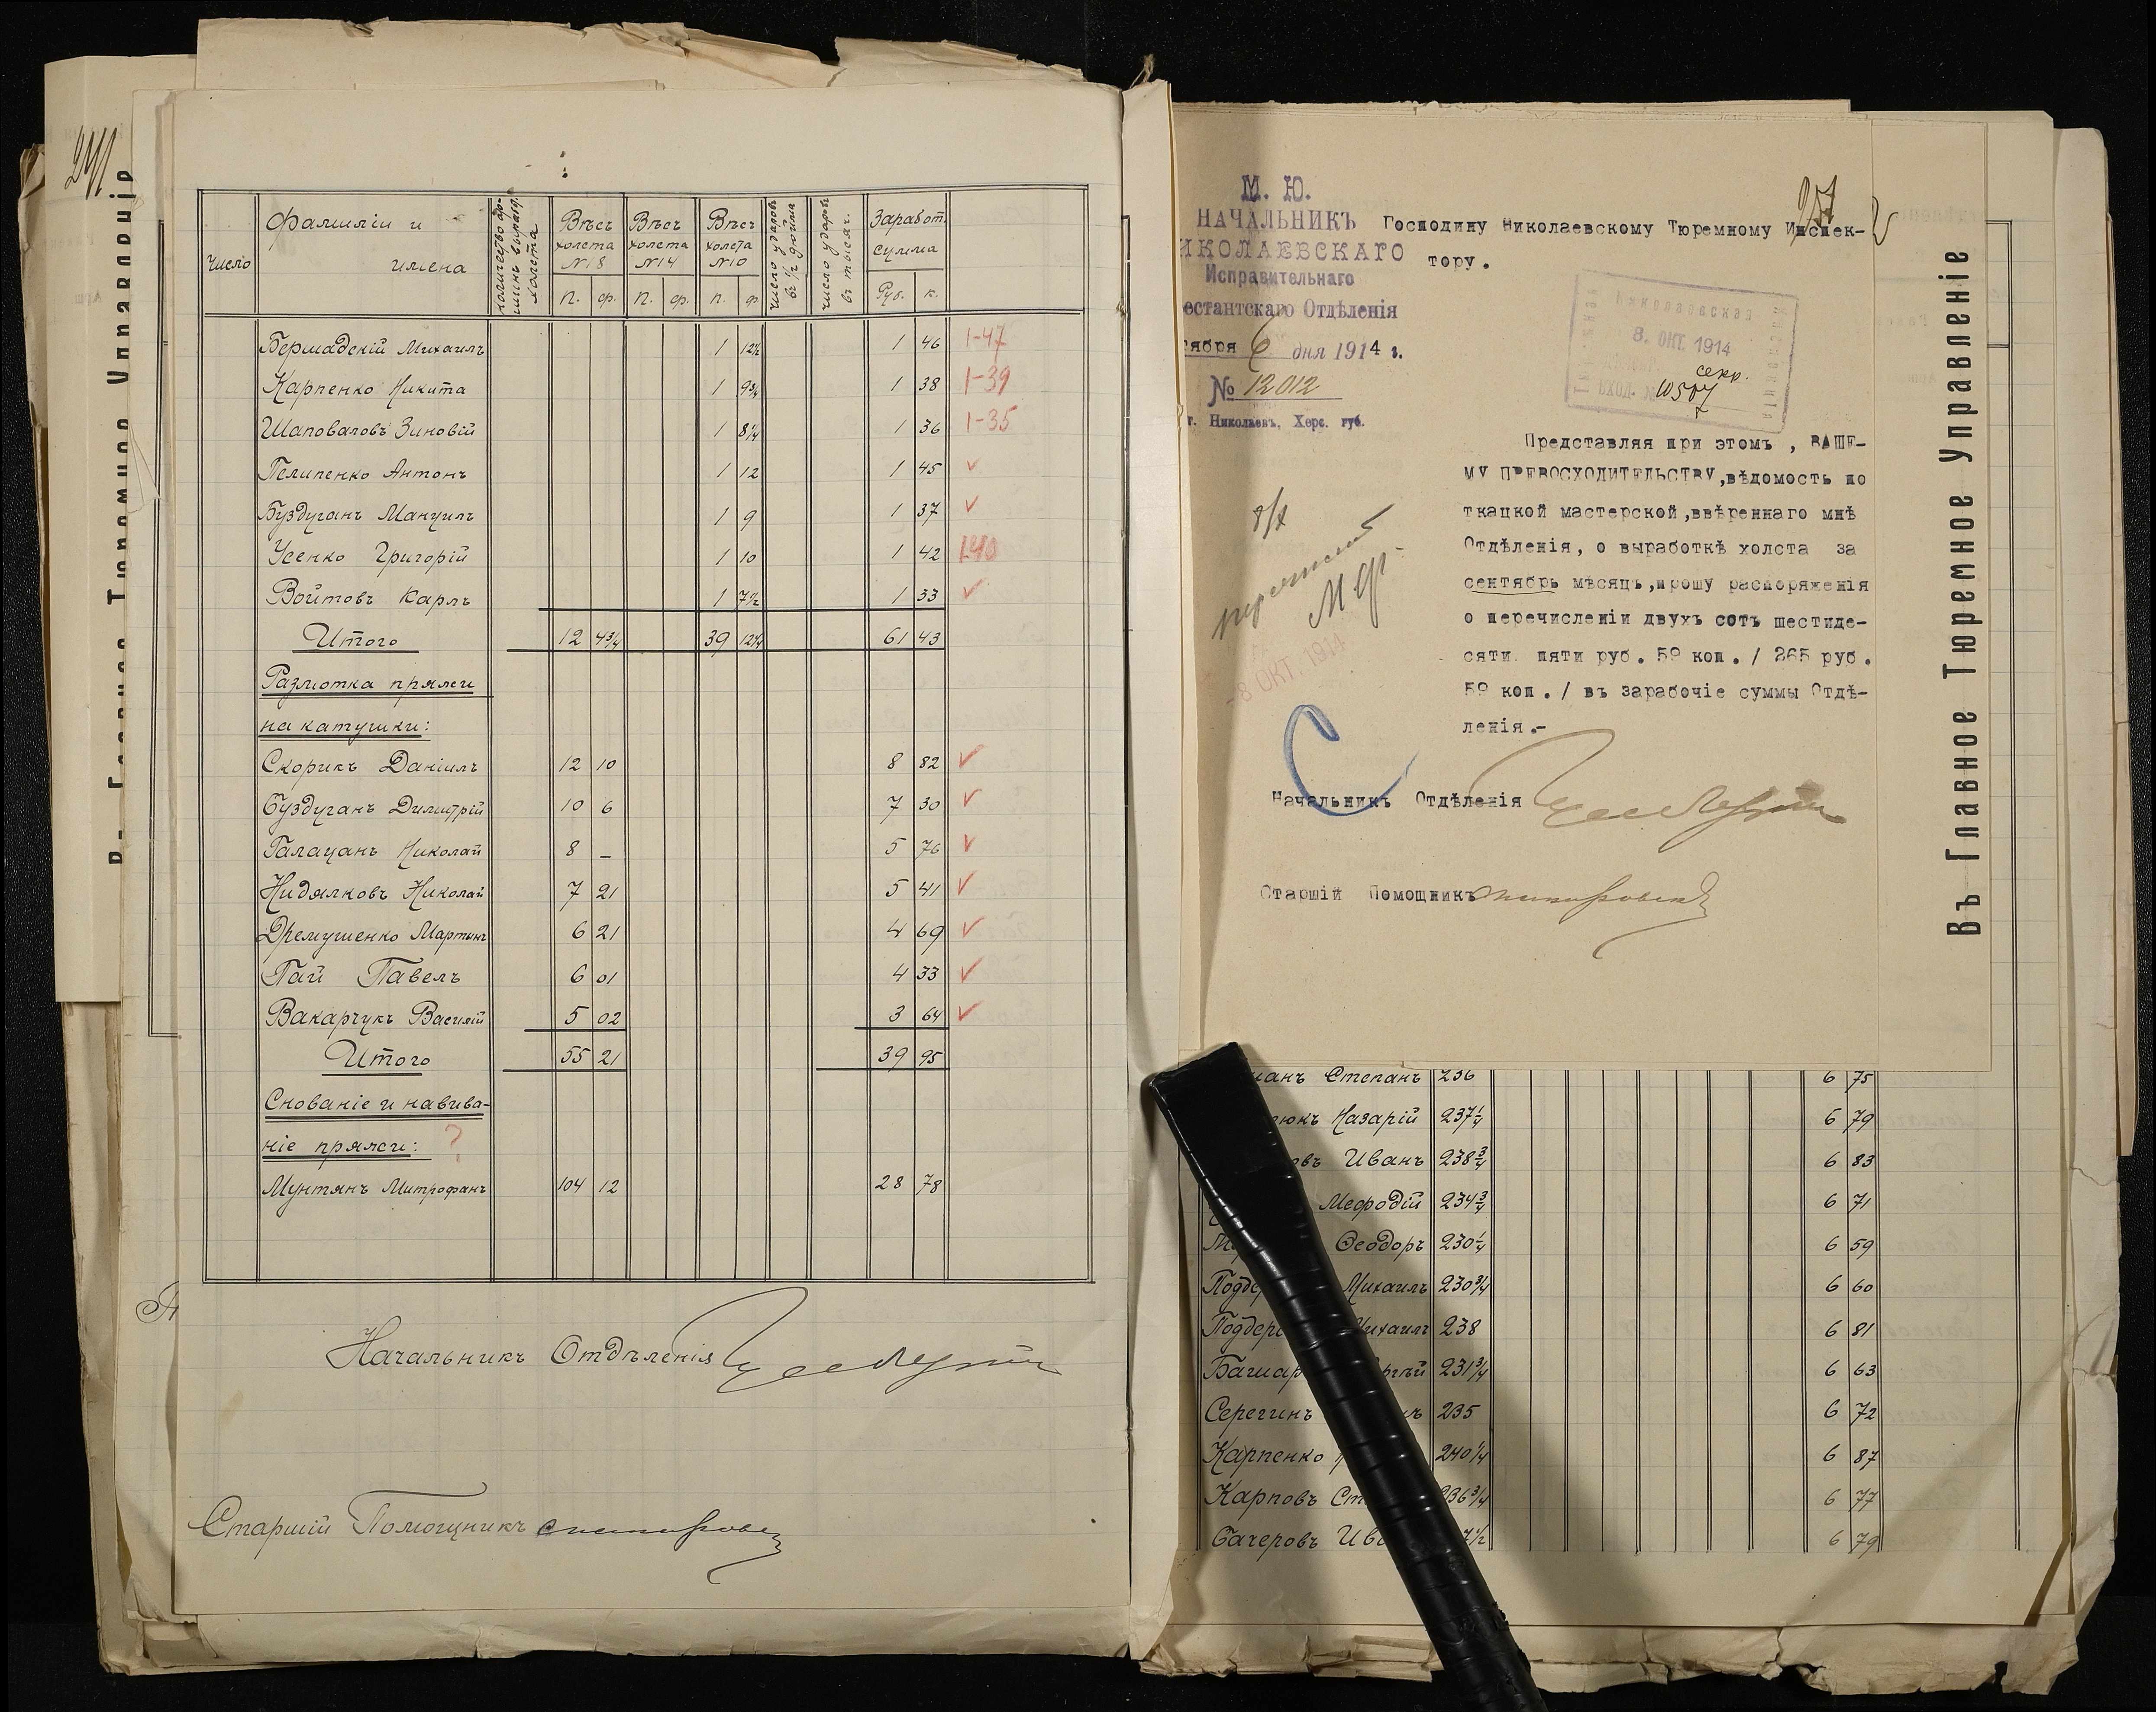 241
Въ Главное Тюремное Управленіе
число
Фамиліи и имена
количество аршинъ выраб. холста
Вѣсъ холста №18
Вѣсъ холста №14
Вѣсъ холста №10
число ударовъ въ ½ дюйма
число ударовъ въ тысяч.
Заработ. сумма
п. ф. п. ф. п. ф. Руб. к.
Бермадскій Михаилъ 1 12½ 1 46 1-47
Карпенко Никита 1 9¾ 1 38 1-39
Шаповаловъ Зиновій 1 8¼ 1 36 1-35
Пелипенко Антонъ 1 12 1 45 ✓
Буздуганъ Мануилъ 1 9 1 37 ✓
Усенко Григорій 1 10 1 42 1.40
Войтовъ Карлъ 1 7½ 1 33 ✓
Итого 12 4¾ 39 12¼ 61 43
Размотка пряжи
на катушки:
Скорикъ Даніилъ 12 10 8 82 ✓
Буздуганъ Димитрій 10 6 7 30 ✓
Галацанъ Николай 8 – 5 76 ✓
Нидялковъ Николай 7 21 5 41 ✓
Дремушенко Мартынъ 6 21 4 69 ✓
Гай Павелъ 6 01 4 33 ✓
Вакарчукъ Василій 5 02 3 64 ✓
Итого 55 21 39 95
Снованіе и навива-
ніе пряжи: ?
Мунтянъ Митрофанъ 104 12 28 78
Начальникъ Отдѣленія
Старшій Помощникъ
М. Ю.
НАЧАЛЬНИКЪ
ИКОЛАЕВСКАГО
Исправительнаго
естантскаго Отдѣленія
тября 6 дня 1914 г.
№ 12012
г. Николаевъ, Херс. губ.
251
Господину Николаевскому Тюремному Инспек-
тору.
Николаевская
8. ОКТ. 1914
секр.
ВХОД. № 10507
Представляя при этомъ , ВАШЕ-
МУ ПРЕВОСХОДИТЕЛЬСТВУ,вѣдомость по
ткацкой мастерской,ввѣреннаго мнѣ
Отдѣленія, о выработкѣ холста за
сентябрь мѣсяцъ,прошу распоряженія
о перечисленіи двухъ сотъ шестиде-
сяти пяти руб. 59 коп. / 265 руб.
59 коп. / въ заработчіе суммы Отдѣ-
ленія.-
8/X
-8 ОКТ. 1914
Начальникъ Отдѣленія
Старшій Помощникъ
Въ Главное Тюремное Управленіе
манъ Степанъ 236 6 75
юкъ Назарій 237¼ 6 79
овъ Иванъ 238¾ 6 83
Мефодій 234¾ 6 71
Ѳеодоръ 230¼ 6 59
Подде Михаилъ 230¾ 6 60
Поддер Михаилъ 238 6 81
Башар ргѣй 231¾ 6 63
Серегинъ 235 6 72
Карпенко 240¼ 6 87
Карповъ Ст 236¾ 6 77
Бачеровъ Ива 7½ 6 79